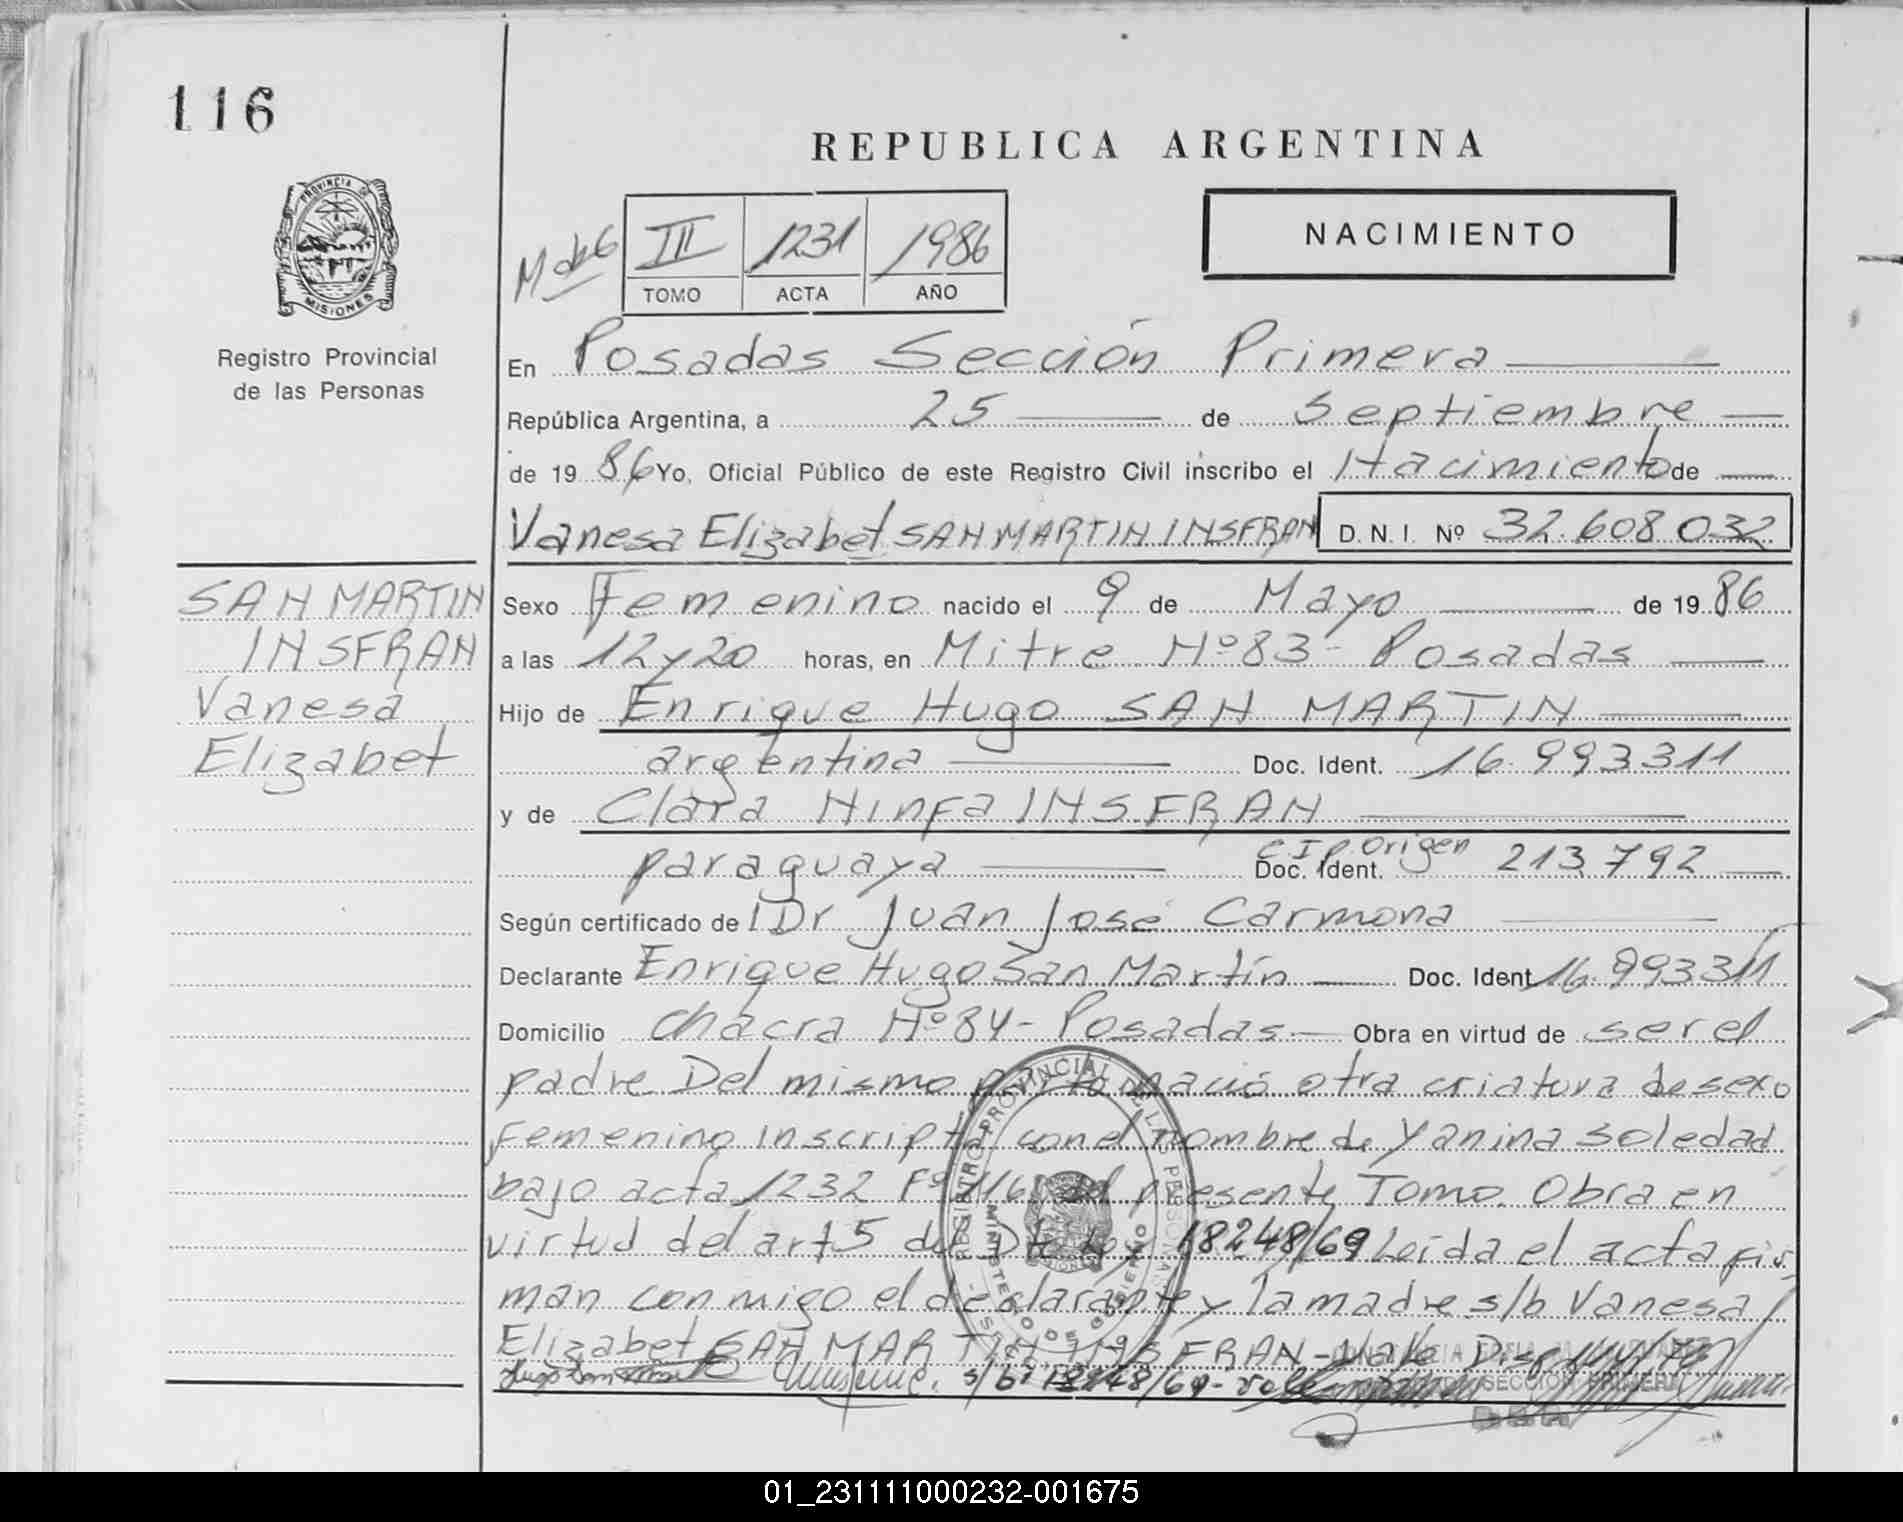 116
REPUBLICA ARGENTINA
PROVINCIA DE
MISIONES
Registro Provincial
de las Personas
III 1231 1986
TOMO ACTA AÑO
NACIMIENTO
En Posadas Sección Primera
República Argentina, a 25 de Septiembre
de 19 86 Yo, Oficial Público de este Registro Civil inscribo el Nacimiento de
Vanesa Elizabet SAN MARTIN INSFRAN D. N. I. Nº 32.608.032
SAN MARTIN
INSFRAN
Vanesa
Elizabet
Sexo Femenino nacido el 9 de Mayo de 19 86
a las 12 y 20 horas, en Mitre Nº 83 - Posadas
Hijo de Enrique Hugo SAN MARTIN
argentina Doc. Ident. 16.993311
y de Clara Ninfa INSFRAN
paraguaya C I p. Origen Doc. Ident. 213.792
Según certificado de l Dr Juan José Carmona
Declarante Enrique Hugo San Martín Doc. Ident 16.993311
Domicilio chacra Nº 84 - Posadas - Obra en virtud de ser el
padre Del mismo parto nació otra criatura de sexo
femenino inscripta con el nombre de Yanina Soledad
bajo acta 1232 Fº 116 del presente Tomo. Obra en
virtud del art 5 del Dto Ley 18248/69 Leida el acta fir
man conmigo el declarante y la madre s/b Vanesa
Elizabet SAN MARTIN INSFRAN - Vale
s/bº 18248/69 -
REGISTRO PROVINCIAL DE LAS PERSONAS
MINISTERIO DE GOBIERNO
MISIONES
SECCION PRIMERA
01_231111000232-001675